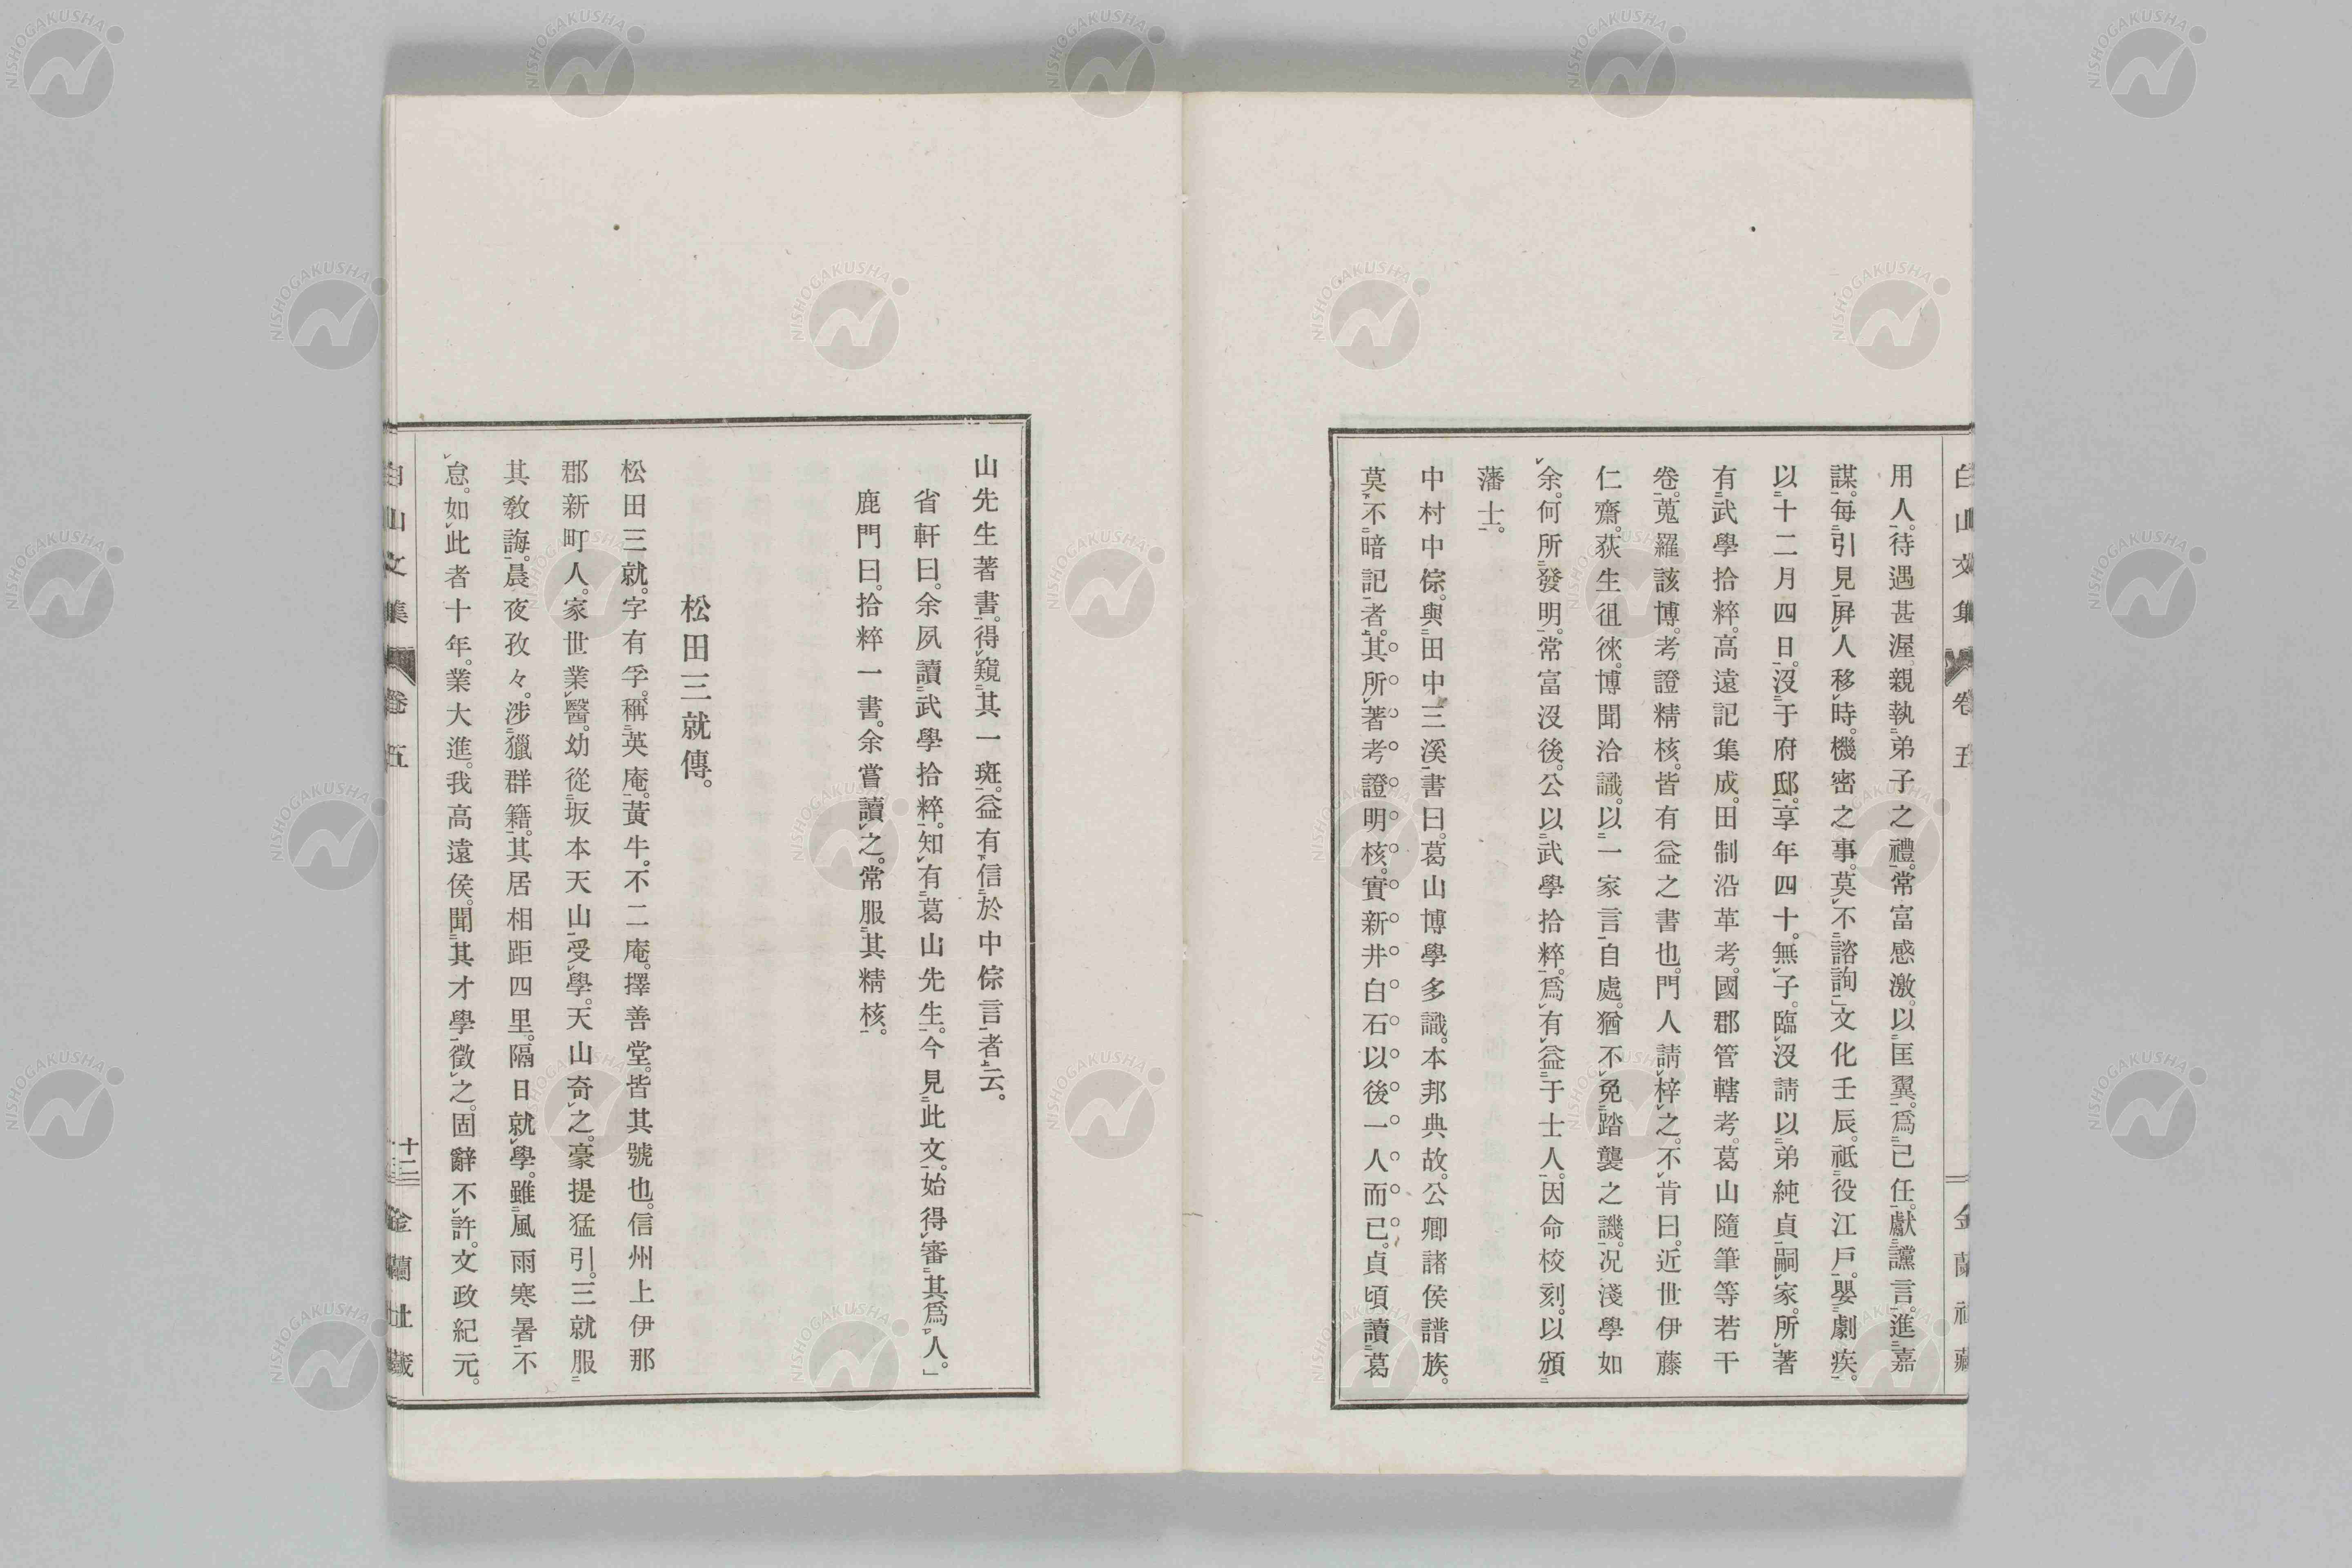 白山文集 卷五 金蘭社藏
用人。待遇甚渥。親執弟子之禮。常富感激。以匡翼爲己任。獻讜言。進嘉
謀。每引見。屏人移時。機密之事。莫不諮詢」文化壬辰。祗役江戶。嬰劇疾。
以十二月四日。沒于府邸。享年四十。無子。臨沒請以弟純貞嗣家。所著
有武學拾粹。高遠記集成。田制沿革考。國郡管轄考。葛山隨筆等若干
卷。蒐羅該博。考證精核。皆有益之書也。門人請梓之。不肯曰。近世伊藤
仁齋。荻生徂徠。博聞洽識。以一家言自處。猶不免踏襲之譏。况淺學如
余。何所發明。常富沒後。公以武學拾粹。爲有益于士人。因命校刻。以頒
藩士。
中村中倧。與田中三溪書曰。葛山博學多識。本邦典故。公卿諸侯譜族。
莫不暗記者。其所著考證明核。實新井白石以後一人而已。貞頃讀葛
山先生著書。得窺其一斑。益有信於中倧言者云。
省軒曰。余夙讀武學拾粹。知有葛山先生。今見此文。始得審其爲人。」
鹿門曰。拾粹一書。余嘗讀之。常服其精核。
松田三就傳。
松田三就。字有孚。稱英庵。黃牛。不二庵。擇善堂。皆其號也。信州上伊那
郡新町人。家世業醫。幼從坂本天山受學。天山奇之。豪提猛引。三就服
其敎誨。晨夜孜々。涉獵群籍。其居相距四里。隔日就學。雖風雨寒暑不
怠。如此者十年。業大進。我高遠侯。聞其才學。徵之。固辭不許。文政紀元。
白山文集 卷五 十二 金蘭社藏